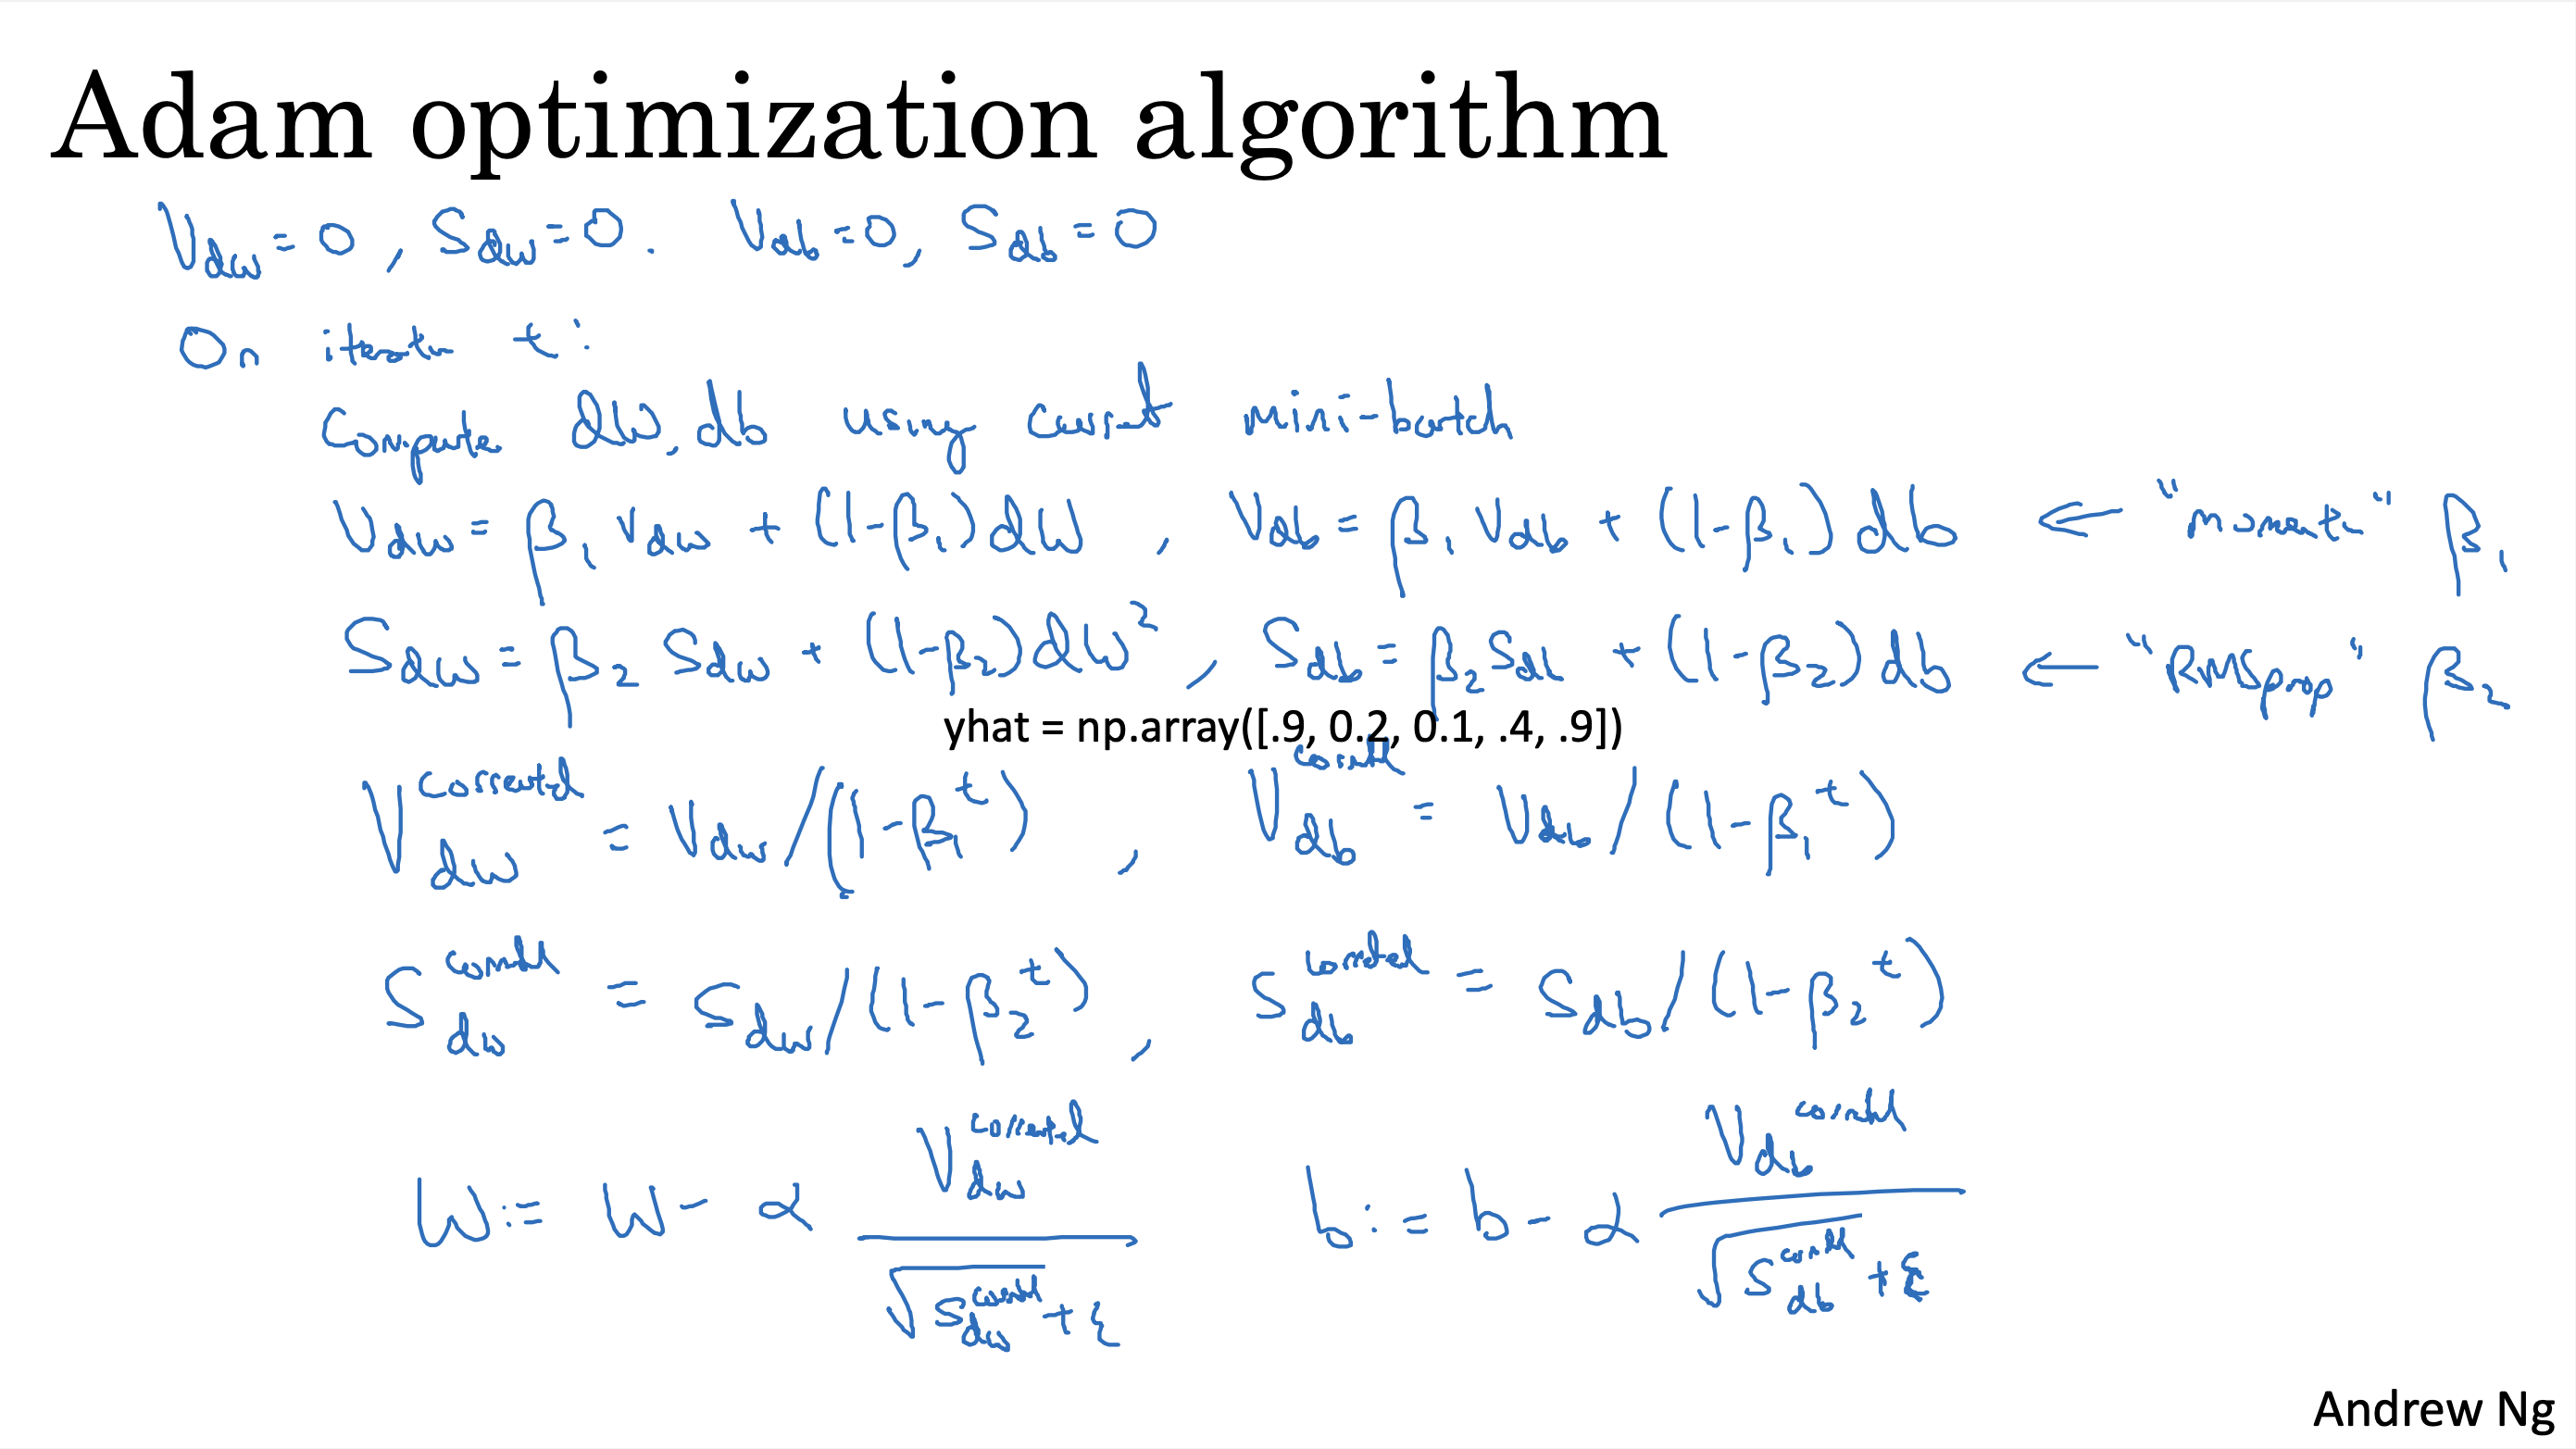 Adam optimization algorithm
V_dw = 0, S_dw = 0. V_db = 0, S_db = 0
On iteratn t:
Compute dW, db using current mini-batch
V_dw = β₁ V_dw + (1-β₁) dW, V_db = β₁ V_db + (1-β₁) db ← "momentn" β₁
S_dw = β₂ S_dw + (1-β₂) dW², S_db = β₂ S_db + (1-β₂) db ← "RMSprop" β₂
yhat = np.array([.9, 0.2, 0.1, .4, .9])
V_dw^corrected = V_dw/(1-β₁^t), V_db^corrected = V_db/(1-β₁^t)
S_dw^corrected = S_dw/(1-β₂^t), S_db^corrected = S_db/(1-β₂^t)
W := W - α V_dw^corrected / √S_dw^corrected + ε b := b - α V_db^corrected / √S_db^corrected + ε
Andrew Ng